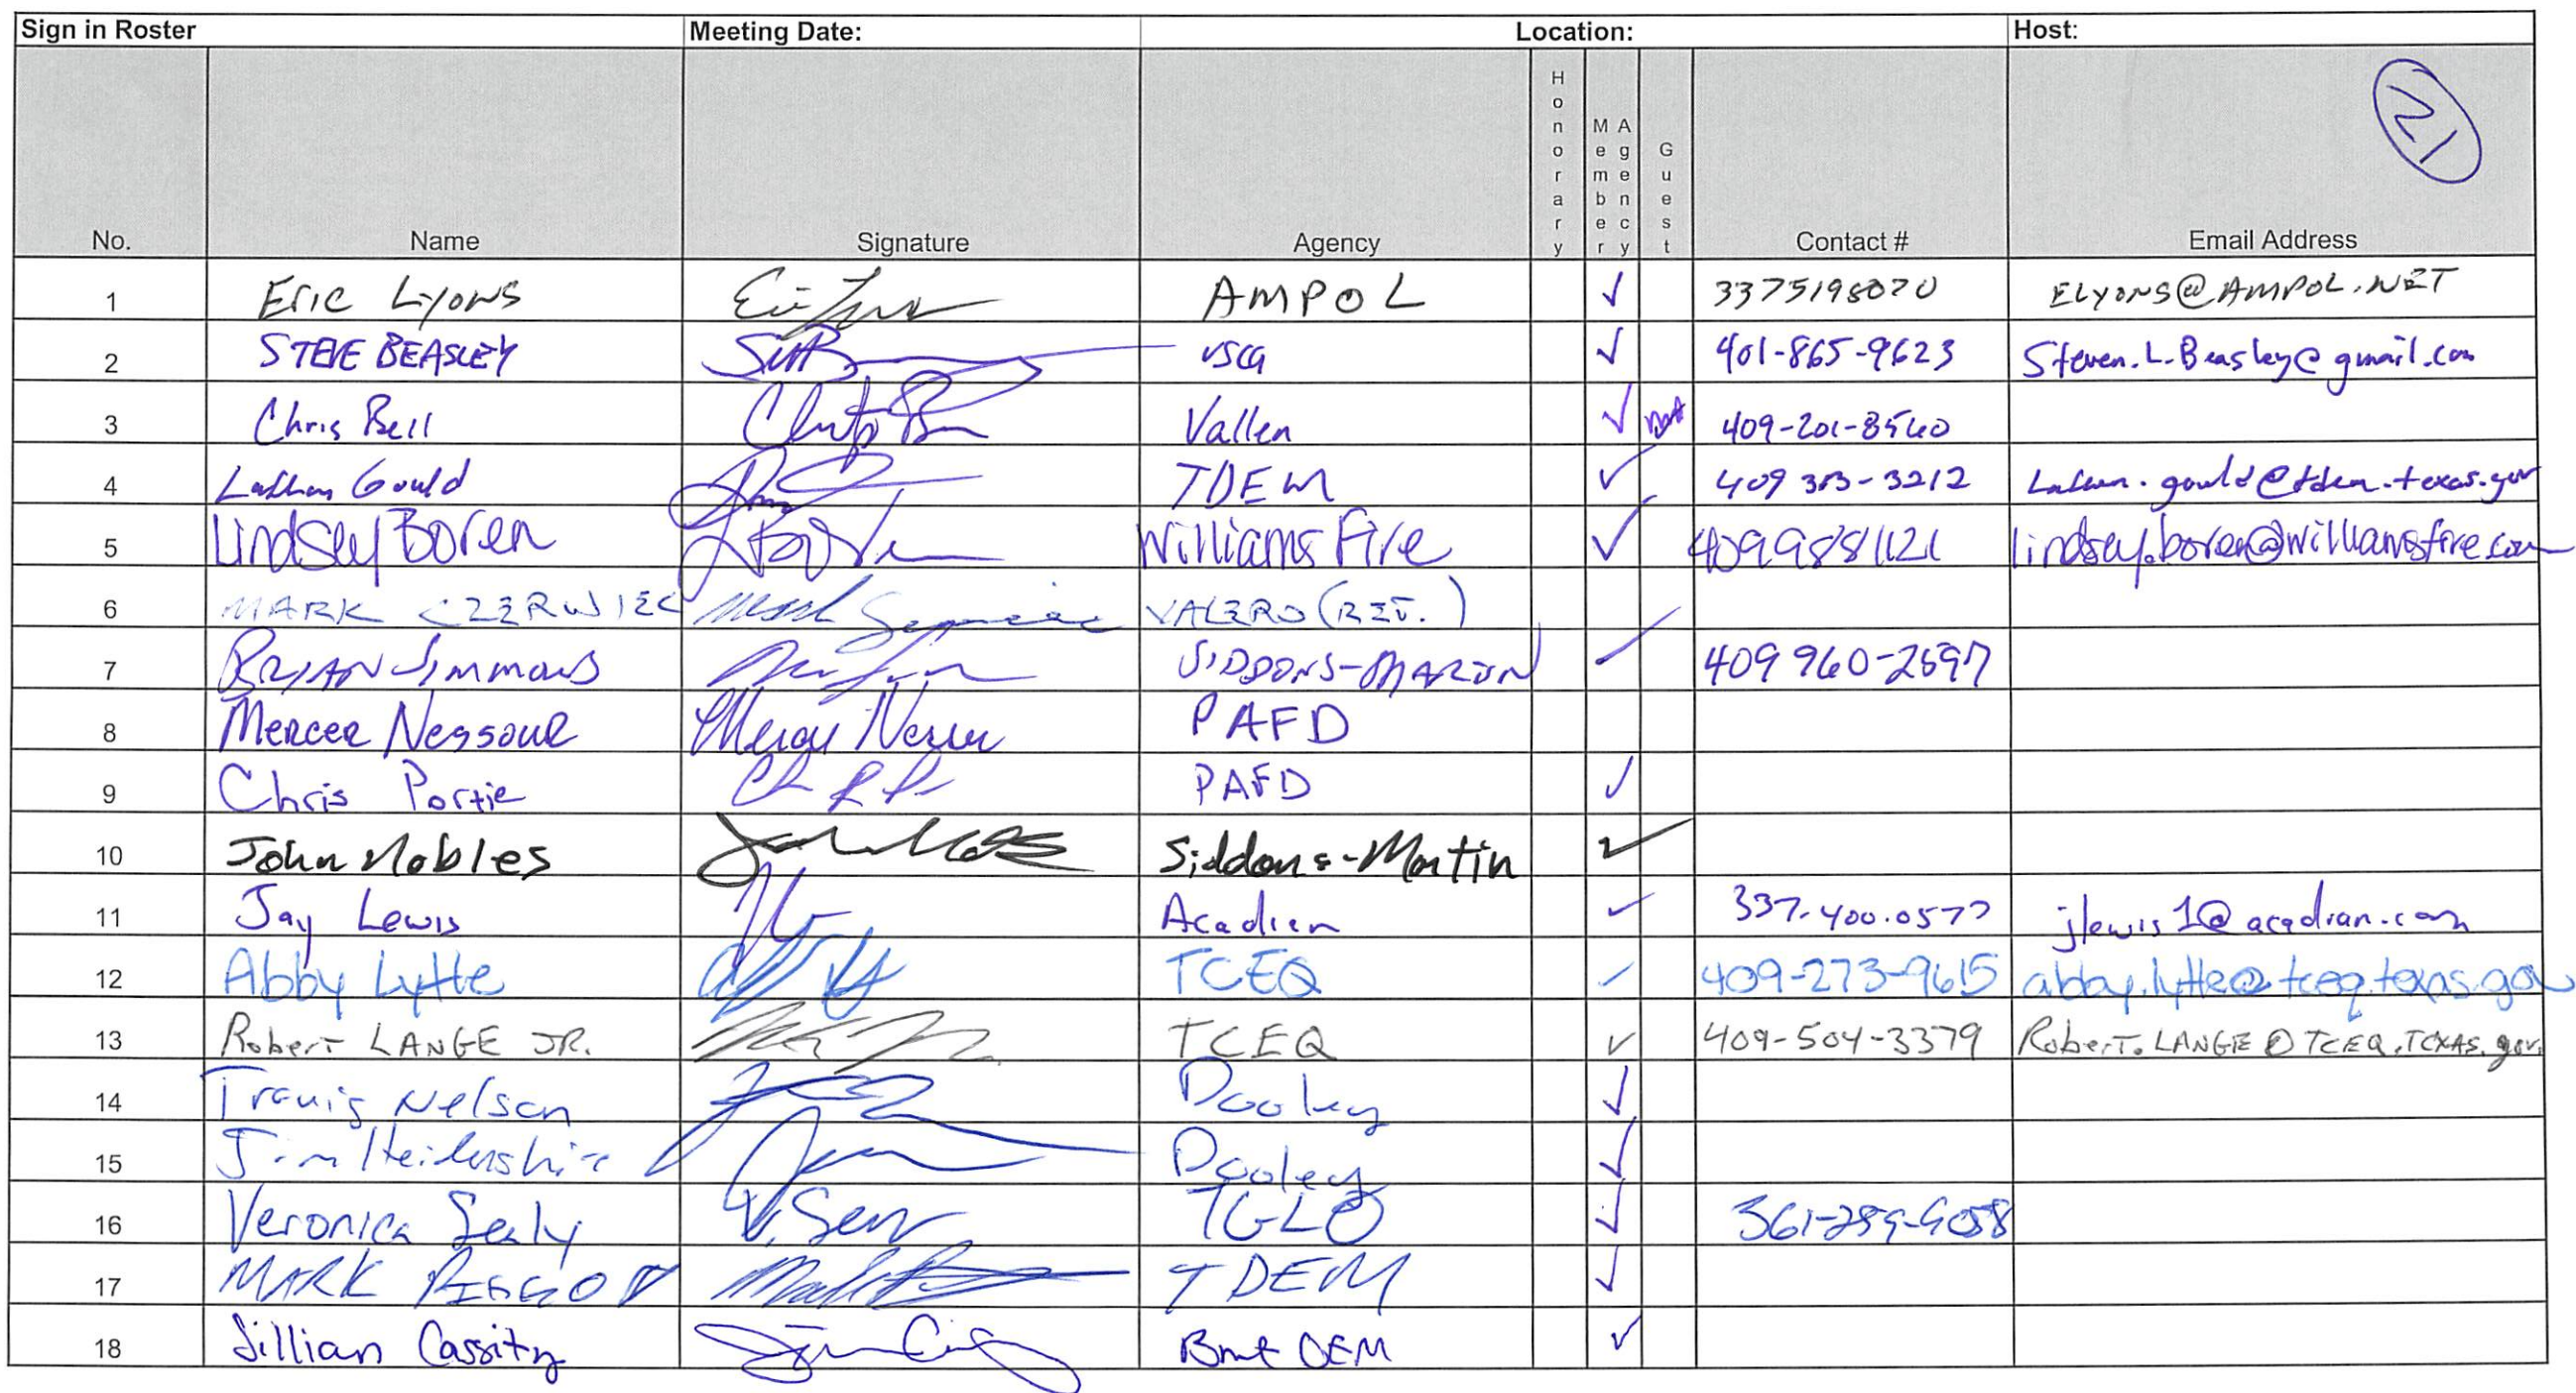 Sign in Roster Meeting Date: Location: Host:
21
No. Name Signature Agency Honorary Member Agency Guest Contact # Email Address
1 Eric Lyons AMPOL ✓ 3375198070 ELYONS@AMPOL.NET
2 STEVE BEASLEY USCG ✓ 401-865-9623 Steven.L.Beasley@gmail.com
3 Chris Bell Vallen ✓ 409-201-8560
4 Gould TDEM ✓ 409 313-3212
5 Lindsey Boren Williams Fire ✓ 4099881121 lindsey.boren@williamsfire.com
6 MARK CZERWIEC VALERO (RET.)
7 BRYAN Simmons SIDDONS-MARTIN ✓ 409 960-2697
8 Mercer Nessour PAFD
9 Chris Portie PAFD ✓
10 John Nobles Siddons-Martin ✓
11 Jay Lewis Acadian ✓ 337.400.0577 jlewis1@acadian.com
12 Abby Lytle TCEQ ✓ 409-273-9615 abby.lytle@tceq.texas.gov
13 Robert LANGE JR. TCEQ ✓ 409-504-3379 Robert.LANGE@TCEQ.TEXAS.gov
14 Travis Nelson Dooley ✓
15 Jim Dooley ✓
16 Veronica Sealy V. TGLO ✓
17 MARK TDEM ✓
18 Jillian Cassity Bmt OEM ✓